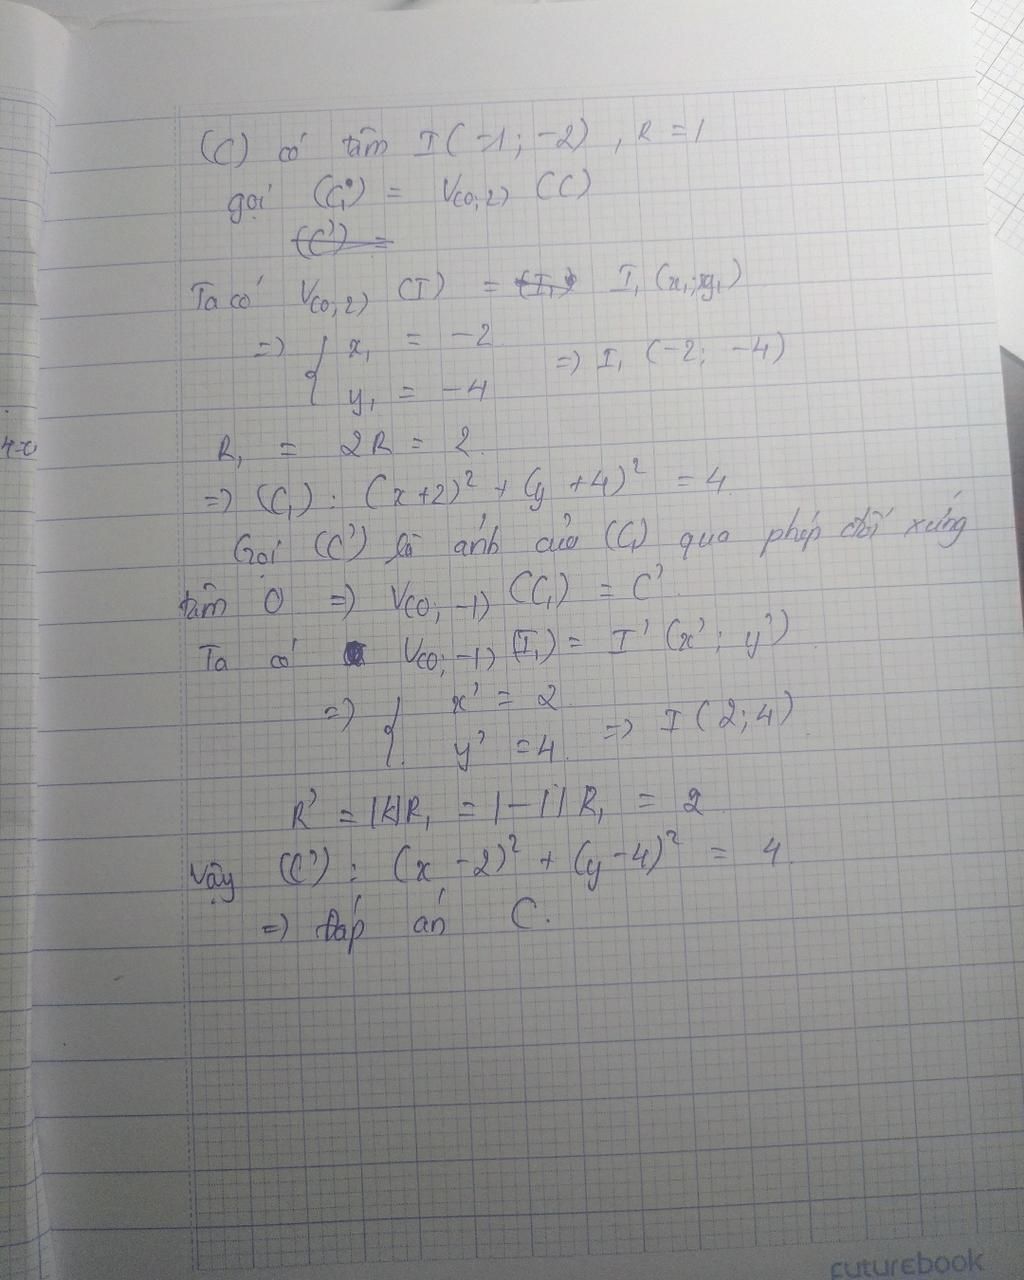 (C) có tâm I(-1; -2), R = 1
gọi (C₁) = V(O; 2) (C)
(C') =
Ta có V(O; 2) (I) = (I₁) I₁ (x₁; y₁)
=> { x₁ = -2
y₁ = -4 => I₁ (-2; -4)
4-x
R₁ = 2R = 2
=> (C₁) : (x+2)² + (y +4)² = 4
Gọi (C') là ảnh của (C₁) qua phép đối xứng
tâm O => V(O; -1) (C₁) = C'
Ta có V(O; -1) (I₁) = I' (x'; y')
=> { x' = 2
y' = 4 => I (2; 4)
R' = |k|R₁ = |-1| R₁ = 2
Vậy (C') : (x -2)² + (y -4)² = 4
=> Đáp án C.
futurebook